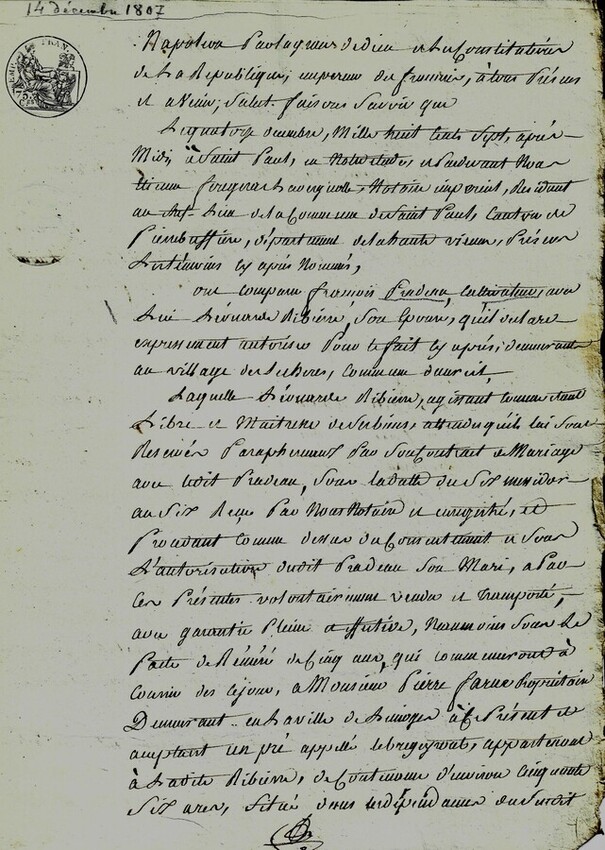 14 décembre 1807
Napoléon Par la grace de dieu et les Constitutions
de la Republique, empereur des francais, a tous Présens
et a venir, Salut. faisons Savoir que
Le quatorze decembre, Mille huit Cents Sept, après
Midi, à Saint Paul, en Notre étude, et Pardevant Nous
Notaire imperial, Résident
au chef-Lieu de la Commune de Saint Paul, Canton de
Pierrebuffière, département de la haute vienne, Présens
Les témoins cy après Nommés,
ont comparu françois Pradeau, Cultivateur, avec
Lui Léonarde Ribière, Son Epouse, qu'il déclare
expressement autoriser Pour le fait cy après, demeurants
au village de Commune
Laquelle Léonarde Ribière, agissant comme étant
Libre et Maitresse de Ses biens, attendu qu'ils lui Sont
Réservés Paraphernaux Par Son Contrat de Mariage
avec Ledit Pradeau, Sous la datte du Six messidor
an Six Reçu Par Nous Notaire et enregistré, et
Procédant comme dessus du Consentement et Sous
L'autorisation dudit Pradeau Son Mari, a Par
Ces Présentes volontairement vendu et transporté,
avec garantie Pleine et effective, Néanmoins Sous Le
Pacte de Réméré de Cinq ans, qui commenceront à
Courir des ce jour, a Monsieur Pierre farne Propriétaire
Demeurant en La ville de Limoges à Ce Présent et
acceptant un pré appellé appartenant
à Ladite Ribière, de Contenance d'environ Cinquante
Six ares, Situé dans les dépendances du Susdit